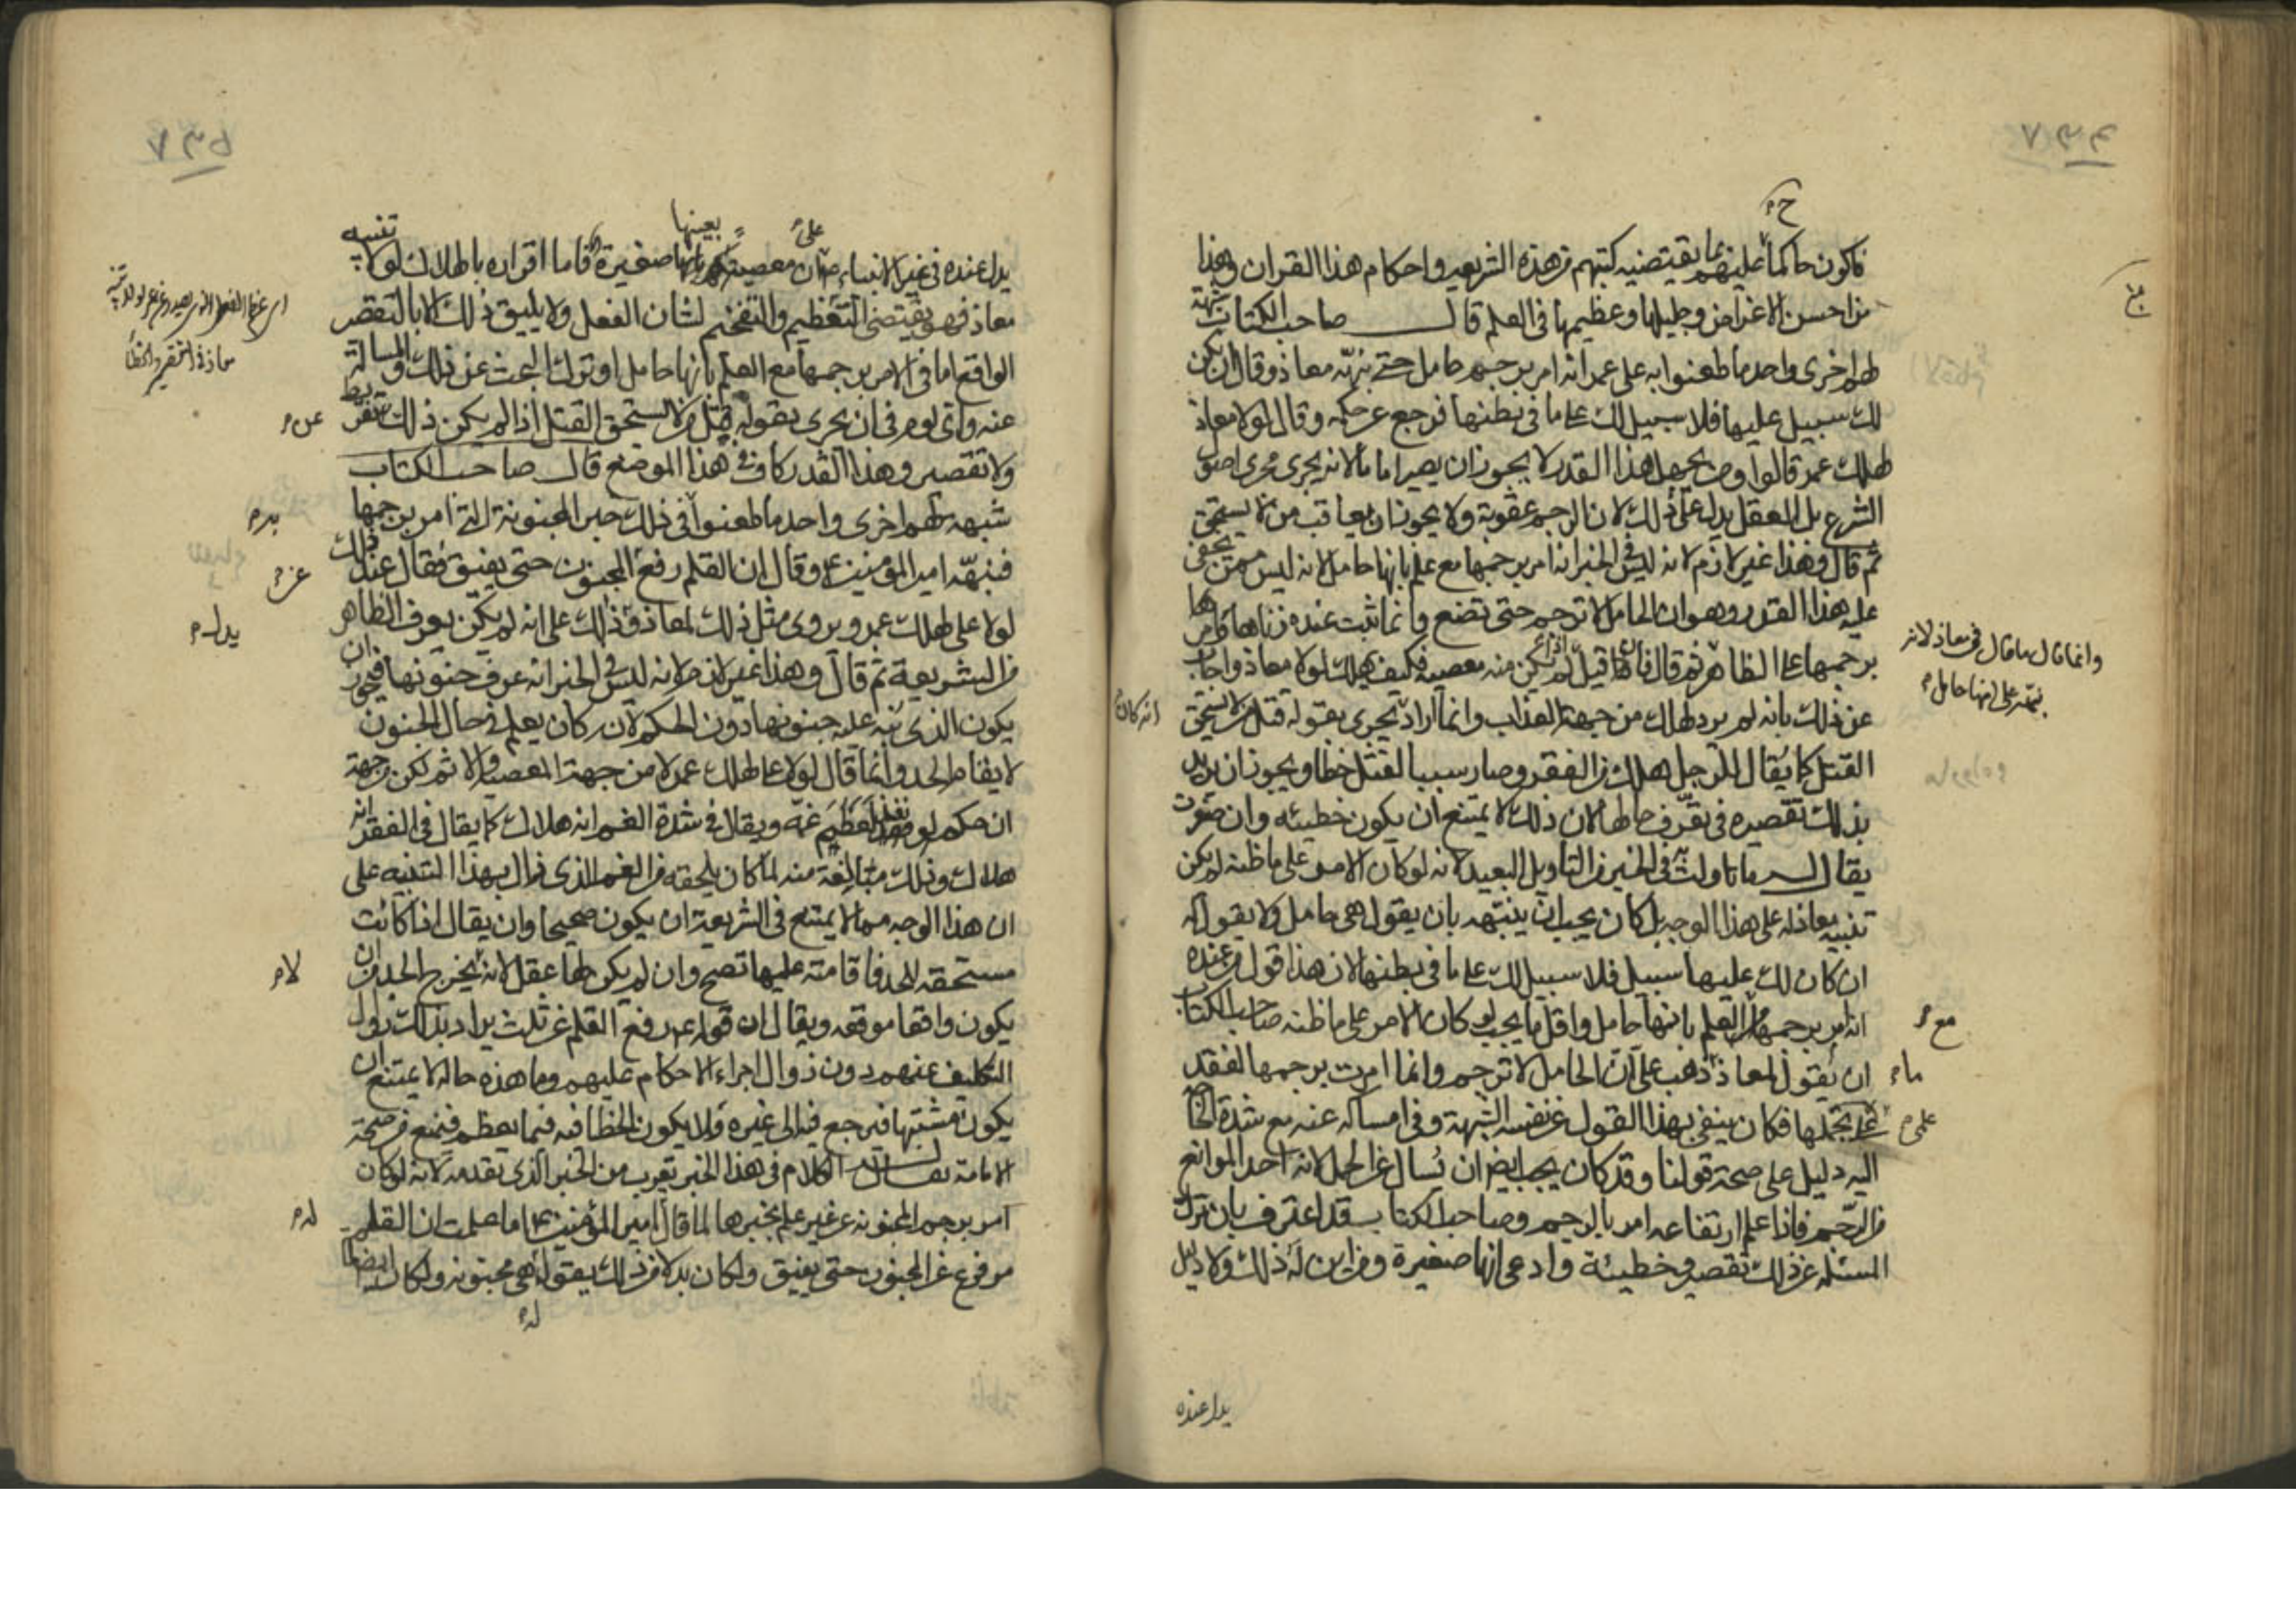 فاكون حاكما عليهم بما يقتضيه كتبهم من هذه الشريعة واحكام هذا القران وهذا
من احسن الاغراض وجليلها وعظيمها فى العلم قال صاحب الكتاب شبهة
لهم اخرى واحد ما طعنوا به على عمر انه امر برجم حامل حتى نبهه معاذ وقال ان يكن
لك سبيل عليها فلا سبيل لك على ما فى بطنها فرجع عن حكمه وقال لولا معاذ
لهلك عمر قالوا ومن يجهل هذا القدر لا يجوز ان يصير اماما لانه يجرى مجرى اصول
الشرع بل العقل يدل على ذلك لان الرجم عقوبة ولا يجوز ان يعاقب من لا يستحق
ثم قال وهذا غير لازم لانه ليس فى الخبر انه امر برجمها مع علمه بانها حامل لانه ليس ممن يخفى
عليه هذا القدر وهو ان الحامل لا ترجم حتى تضع وانما ثبت عنده زناها فامر
برجمها على الظاهر ثم قال فان قيل اذا لم يكن منه معصية فكيف يهلك لولا معاذ واجاب
وانما قال ما قال فى معاذ لانه
نبهه على انها حامل
عن ذلك بانه لم يرد لهلك من جهة العذاب وانما اراد يجرى بقوله قتل من لا يستحق
انه كان
القتل كما يقال للرجل هلك من الفقر وصار سببا لقتل خطأ ويجوز ان يريد
بذلك تقصيره فى تعرف حالها لان ذلك لا يمتنع ان يكون خطيئه وان صغرت
يقال له ما تاولت به فى الخبر من التاويل البعيد لانه لو كان الامر على ما ظنه لم يكن
تنبيه معاذ له على هذا الوجه بل كان يجب ان ينبهه بان يقول هى حامل ولا يقول له
ان كان لك عليها سبيل فلا سبيل لك على ما فى بطنها لان هذا قول من عنده
انه امر برجمها مع العلم بانها حامل واقل ما يجب لو كان الامر على ما ظنه صاحب الكتاب
ان يقول لمعاذ ما ذهب على ان الحامل لا ترجم وانما امرت برجمها لفقد
علمى بحملها فكان ينفى بهذا القول عن نفسه الشبهة وفى امساكه عنه مع شدة الحاجة
اليه دليل على صحة قولنا وقد كان يجب ايضا ان يسال عن الحمل لانه احد الموانع
من الرجم فاذا علم ارتفاعه امر بالرجم وصاحب الكتاب قد اعترف بان ترك
المسئله عن ذلك تقصير وخطيئة وادعى انها صغيرة ومن اين له ذلك ولا دليل
يدل عنده
يدل عنده فى غير الانبياء على ان معصية بعينها صغيرة فاما اقراره بالهلاك لولا تنبيه
معاذ فهو يقتضى التعظيم والتفخيم لشان الفعل ولا يليق ذلك الا بالتقصير
الواقع اما فى الامر برجمها مع العلم بانها حامل او ترك البحث عن ذلك والمسالة
عنه واى لوم فى ان يجرى بقوله قتل من لا يستحق القتل اذا لم يكن ذلك عن تفريط
ولا تقصير وهذا القدر كاف فى هذا الموضع قال صاحب الكتاب
شبهة لهم اخرى واحد ما طعنوا فى ذلك خبر المجنونة التى امر برجمها
فنبهه امير المؤمنين وقال ان القلم رفع عن المجنون حتى يفيق فقال عند ذلك
لولا على لهلك عمر ويروى مثل ذلك لمعاذ وذلك يدل على انه لم يكن يعرف الظاهر
من الشريعة ثم قال وهذا غير لازم لانه ليس فى الخبر انه عرف جنونها فيجوز ان
يكون الذى نبه عليه جنونها دون الحكم لانه كان يعلم فى حال الجنون
لا يقام الحد وانما قال لولا على لهلك عمر لا من جهة المعصية والاثم لكن من جهة
ان حكمه لو نفذ لعظم غمه ويقال فى شدة الغم انه هلاك كما يقال فى الفقر انه
هلاك وذلك مبالغة منه لما كان يلحقه من الغم الذى زال بهذا التنبيه على
ان هذا الوجه مما لا يمتنع فى الشريعة ان يكون صحيحا وان يقال اذا كانت
مستحقه للحد فاقامته عليها تصح وان لم يكن لها عقل لانه لا يخرج الحد من ان
يكون واقعا موقعه ويقال ان قوله رفع القلم عن ثلث يراد بذلك زوال
التكليف عنهم دون زوال اجراء الاحكام عليهم وما هذه حاله لا يمتنع ان
يكون مشتبها فيرجع فيه الى غيره ولا يكون الخطا فيه فيما يعظم فيمنع من صحة
الامامة يقال له الكلام فى هذا الخبر يقرب من الخبر الذى تقدمه لانه لو كان
امر برجم المجنونة عن غير علم بخبرها لما قال له امير المؤمنين اما علمت ان القلم
مرفوع عن المجنون حتى يفيق وكان بدلا من ذلك يقول له هى مجنونه وكان ايضا